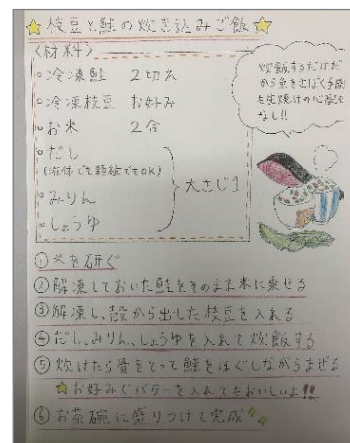 ☆枝豆と鮭の炊き込みご飯☆
〈材料〉
○冷凍鮭 2切れ
○冷凍枝豆 お好み
○お米 2合
○だし
(液体でも顆粒でもOK)
○みりん
○しょうゆ
大さじ1
炊飯するだけだ
から魚を出す手間
も生焼けの心配も
なし!!
①米を研ぐ
②解凍しておいた鮭をそのまま米に乗せる
③解凍し、殻から出した枝豆を入れる
④だし、みりん、しょうゆを入れて炊飯する
⑤炊けたら骨をとって鮭をほぐしながらまぜる
☆お好みでバターを入れてもおいしいよ!!
⑥お茶碗に盛りつけて完成